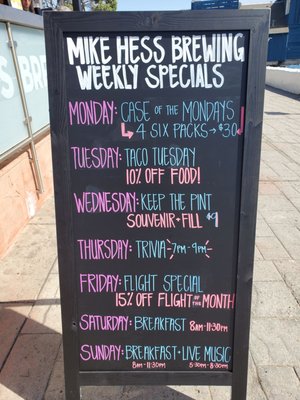 MIKE HESS BREWING
WEEKLY SPECIALS
MONDAY: CASE OF THE MONDAYS
4 SIX PACKS → $30
TUESDAY: TACO TUESDAY
10% OFF FOOD!
WEDNESDAY: KEEP THE PINT
SOUVENIR + FILL $9
THURSDAY: TRIVIA 7PM - 9PM
FRIDAY: FLIGHT SPECIAL
15% OFF FLIGHT OF THE MONTH
SATURDAY: BREAKFAST 8AM - 11:30PM
SUNDAY: BREAKFAST + LIVE MUSIC
8AM - 11:30PM 5:30PM - 8:30PM